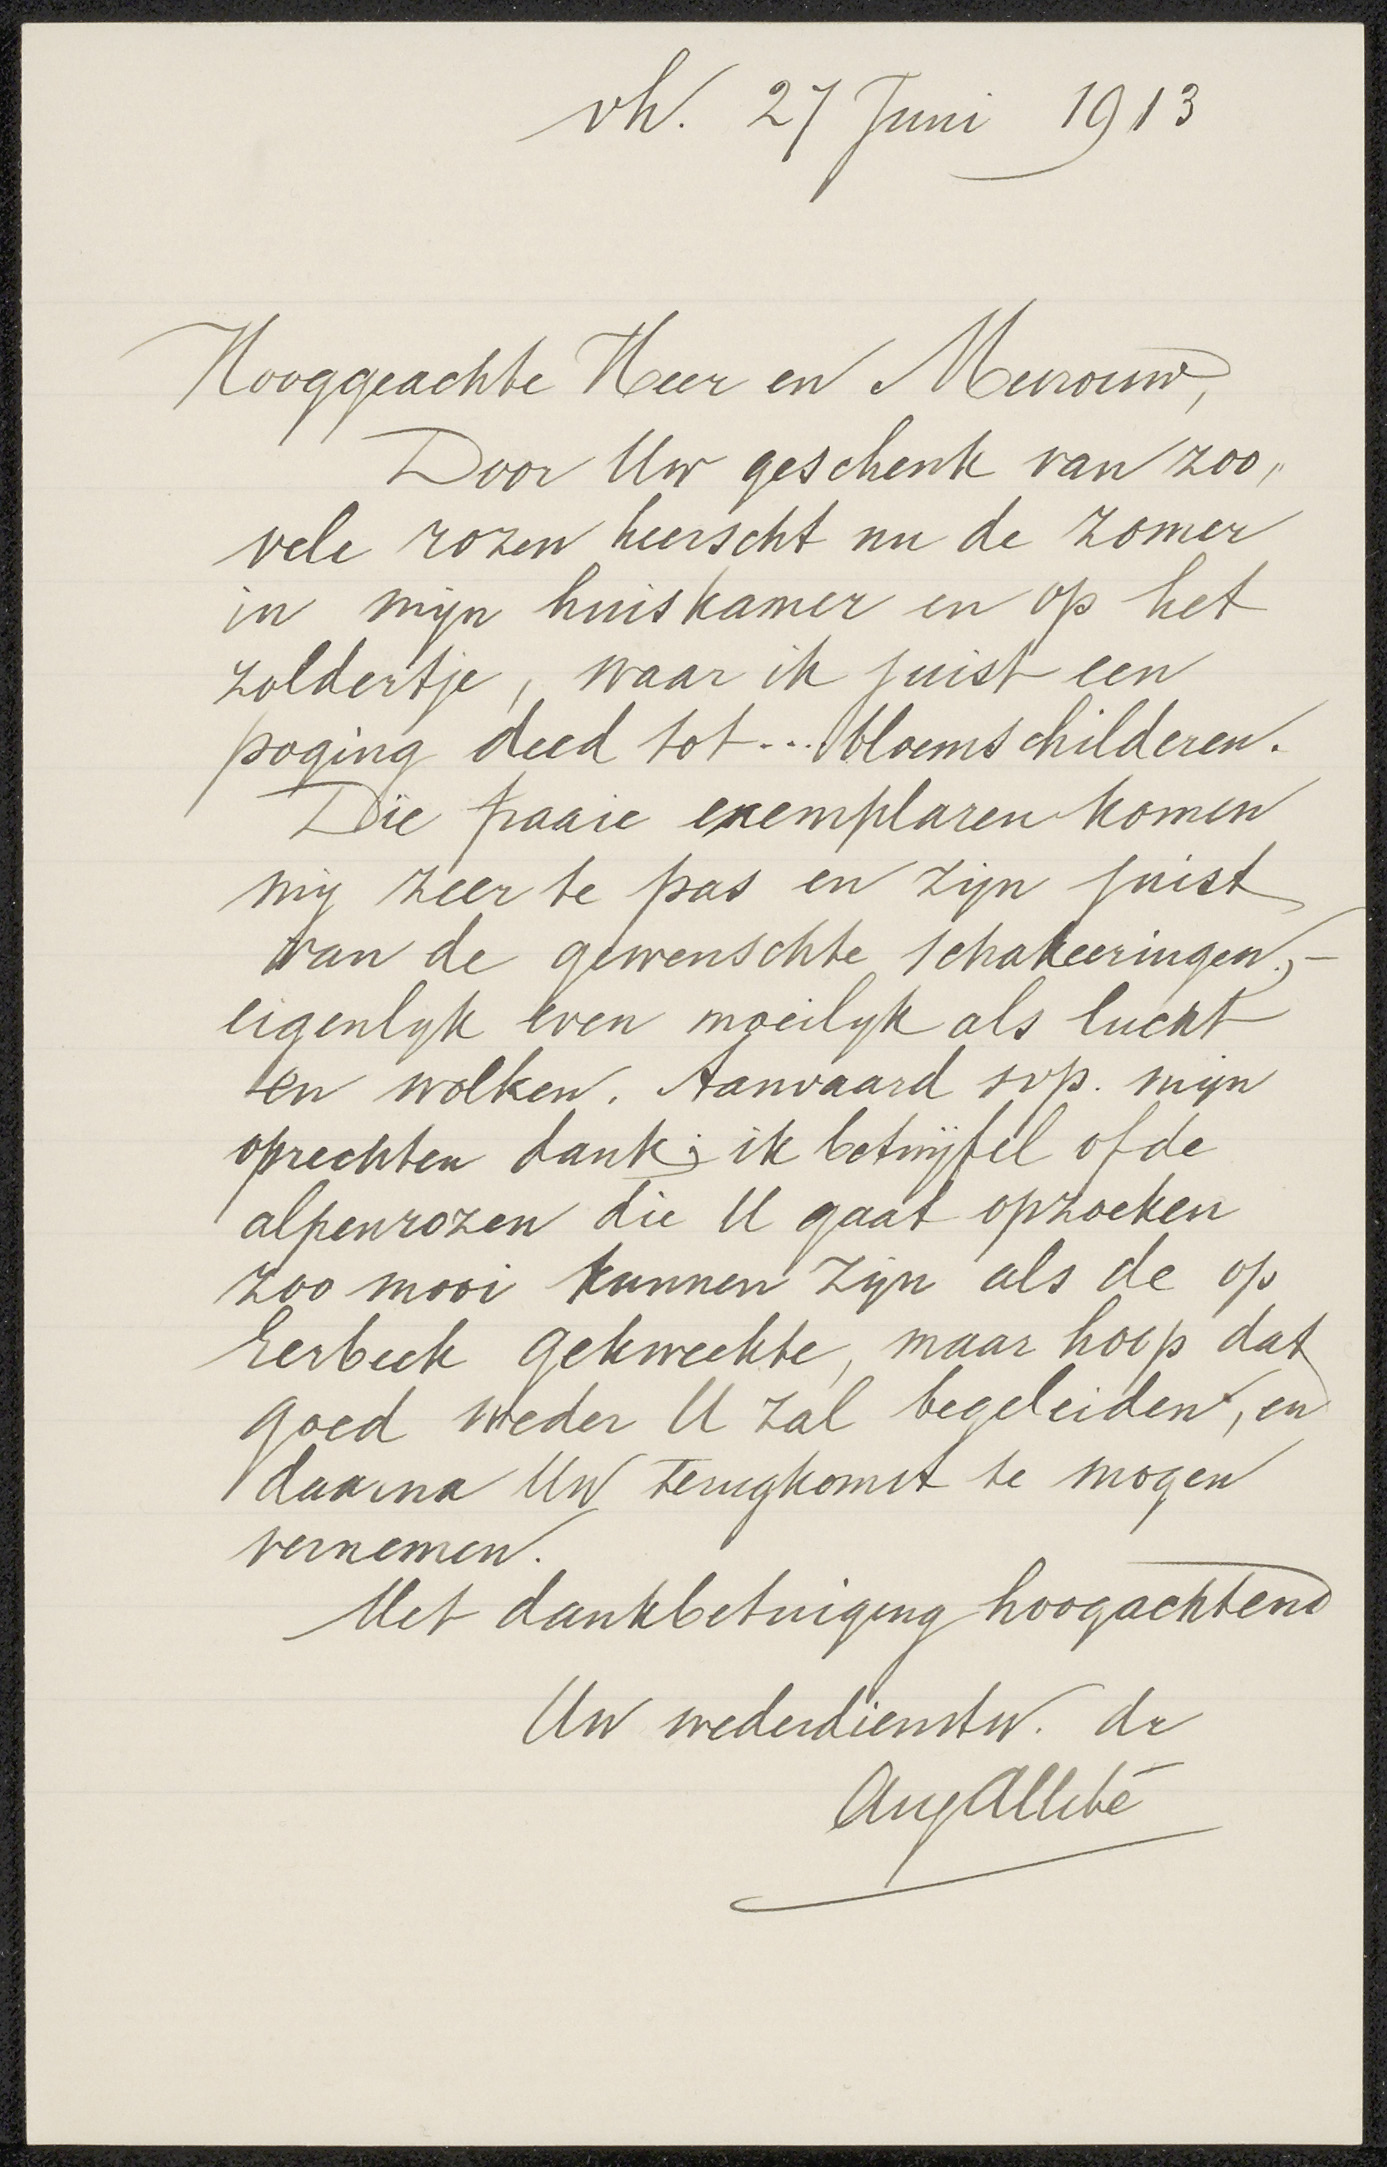 vh. 27 Juni 1913
Hooggeachte Heer en Mevrouw,
Door Uw geschenk van zoo„
vele rozen heerscht nu de zomer
in mijn huiskamer en op het
zoldertje, waar ik juist een
poging deed tot... bloemschilderen.
Die fraaie exemplaren komen
mij zeer te pas en zijn juist
van de gewenschte schakeeringen, -
eigenlijk even moeilijk als lucht
en wolken. Aanvaard svp. mijn
oprechten dank; ik betwijfel of de
alpenrozen die U gaat opzoeken
zoo mooi kunnen zijn als de op
Eerbeek gekweekte, maar hoop dat
goed weder U zal begeleiden, en
daarna Uw terugkomst te mogen
vernemen.
Met dankbetuiging hoogachtend
Uw wederdienstw. dr
Aug Allebé